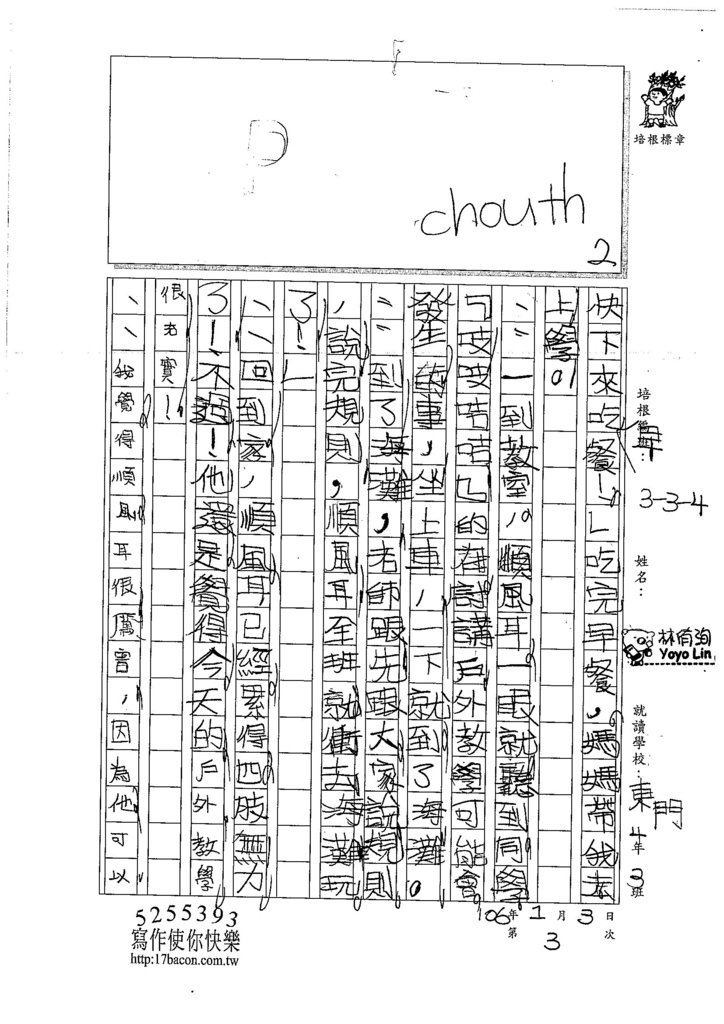 chouth
2
培根標章
快下來吃早餐！」吃完早餐，媽媽帶我去
上學。
一到教室，順風耳一眼就聽到同學
「吱吱咕咕」的在討講戶外教學可能會
發生的事，坐上車，一下就到了海灘。
到了海灘，老師跟先跟大家說規則
，說完規則，順風耳全班就衝去海灘玩
了！」
回到家，順風耳已經累得四肢無力
了！不過！他還是覺得今天的戶外教學
很老實！
我覺得順風耳很厲害，因為他可以
培根編班：
3-3-4
姓名：
林侑洵
Yoyo Lin
就讀學校：東門4年3班
106年1月3日
第3次
5255393
寫作使你快樂
http:17bacon.com.tw